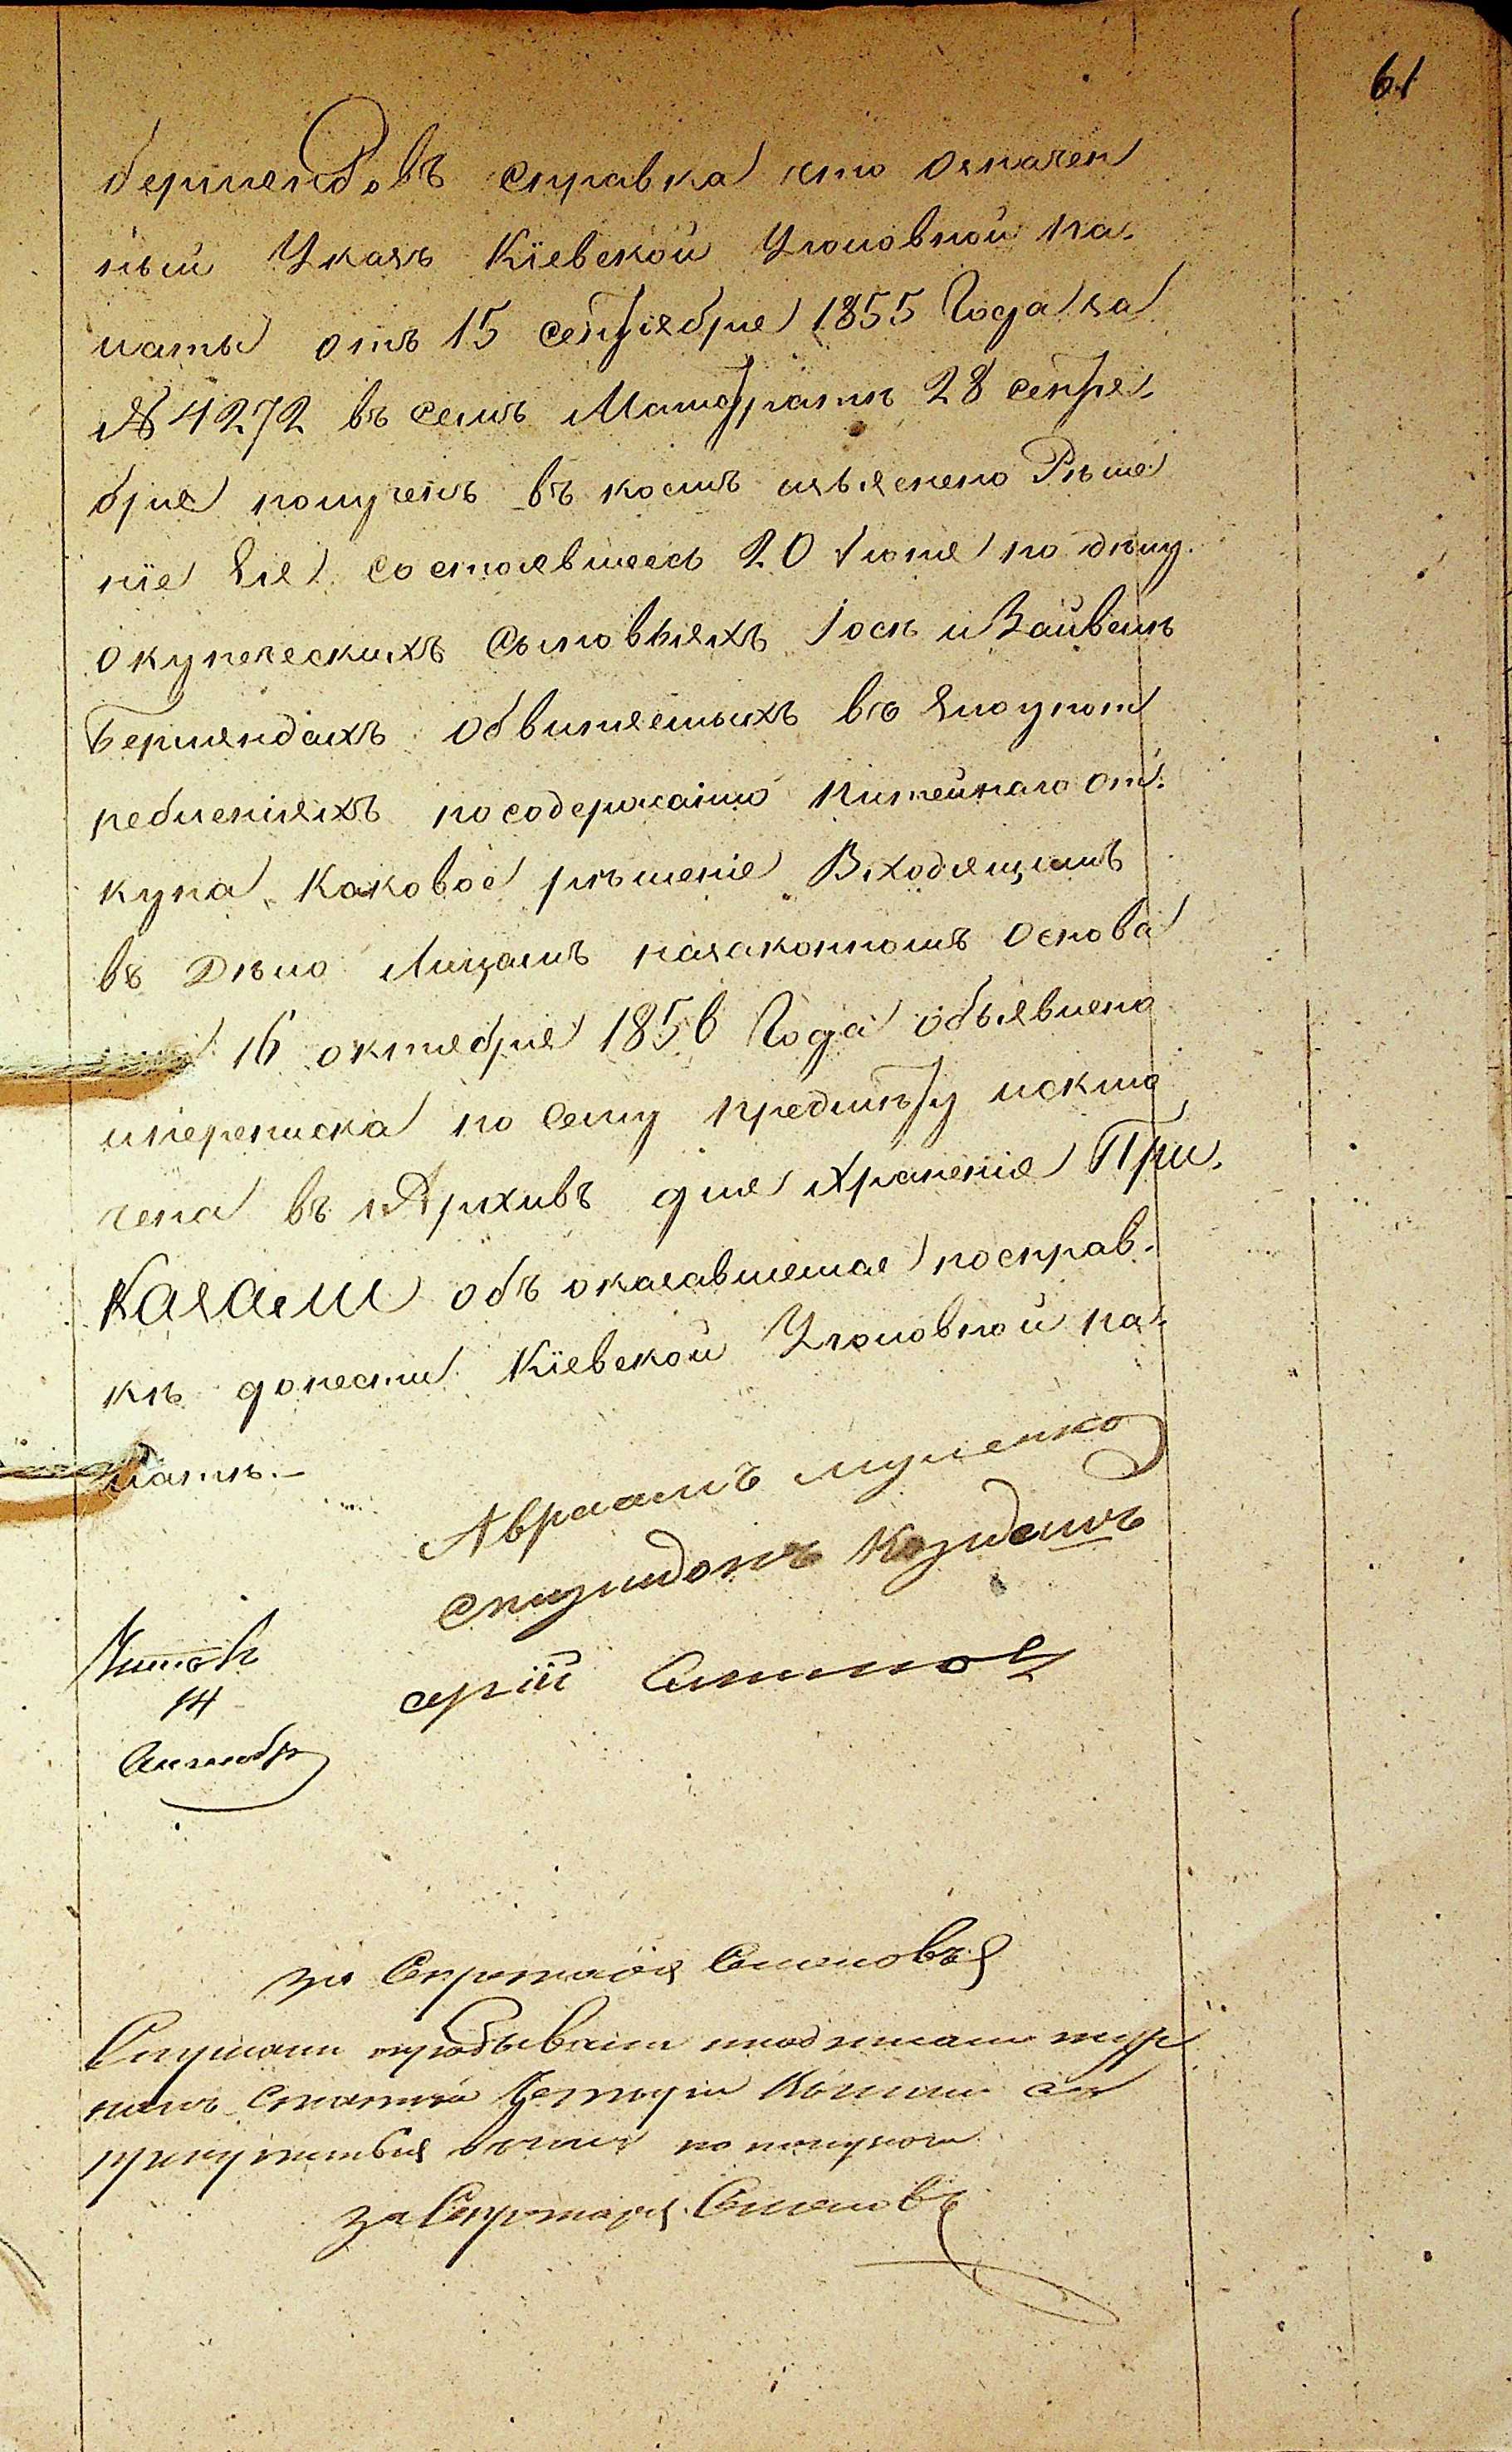 61
бермендовъ справка что означен
ный Указъ Кіевской Уголовной па.
латы отъ 15 сентября 1855 Года за
№ 4272 въ семъ Магистратѣ 28 сентя.
бря полученъ въ коемъ изъяснено Рѣше
ніе Ея состоявшеесь 20 Іюня по дѣлу.
окупеческихъ сыновьяхъ Іосѣ и Вайвелѣ
Бермендахъ обвиняемыхъ въ злоупот
ребленіяхъ посодержанію питейнаго от.
купа каковое рѣшеніе Входящимъ
въ Дѣло Лицамъ назаконномъ основа
16 октября 1856 Года объявлено
ипереписка по сему предмѣту исклю
чена въ Архивъ для Храненія При.
Казали объ оказавшемся посправ.
кѣ донести Кіевской Уголовной па.
латѣ.
Авраамъ
Спиридонъ
Читалъ
14
за Секретаря Семеновъ
Слушали
за Секретаря Семеновъ